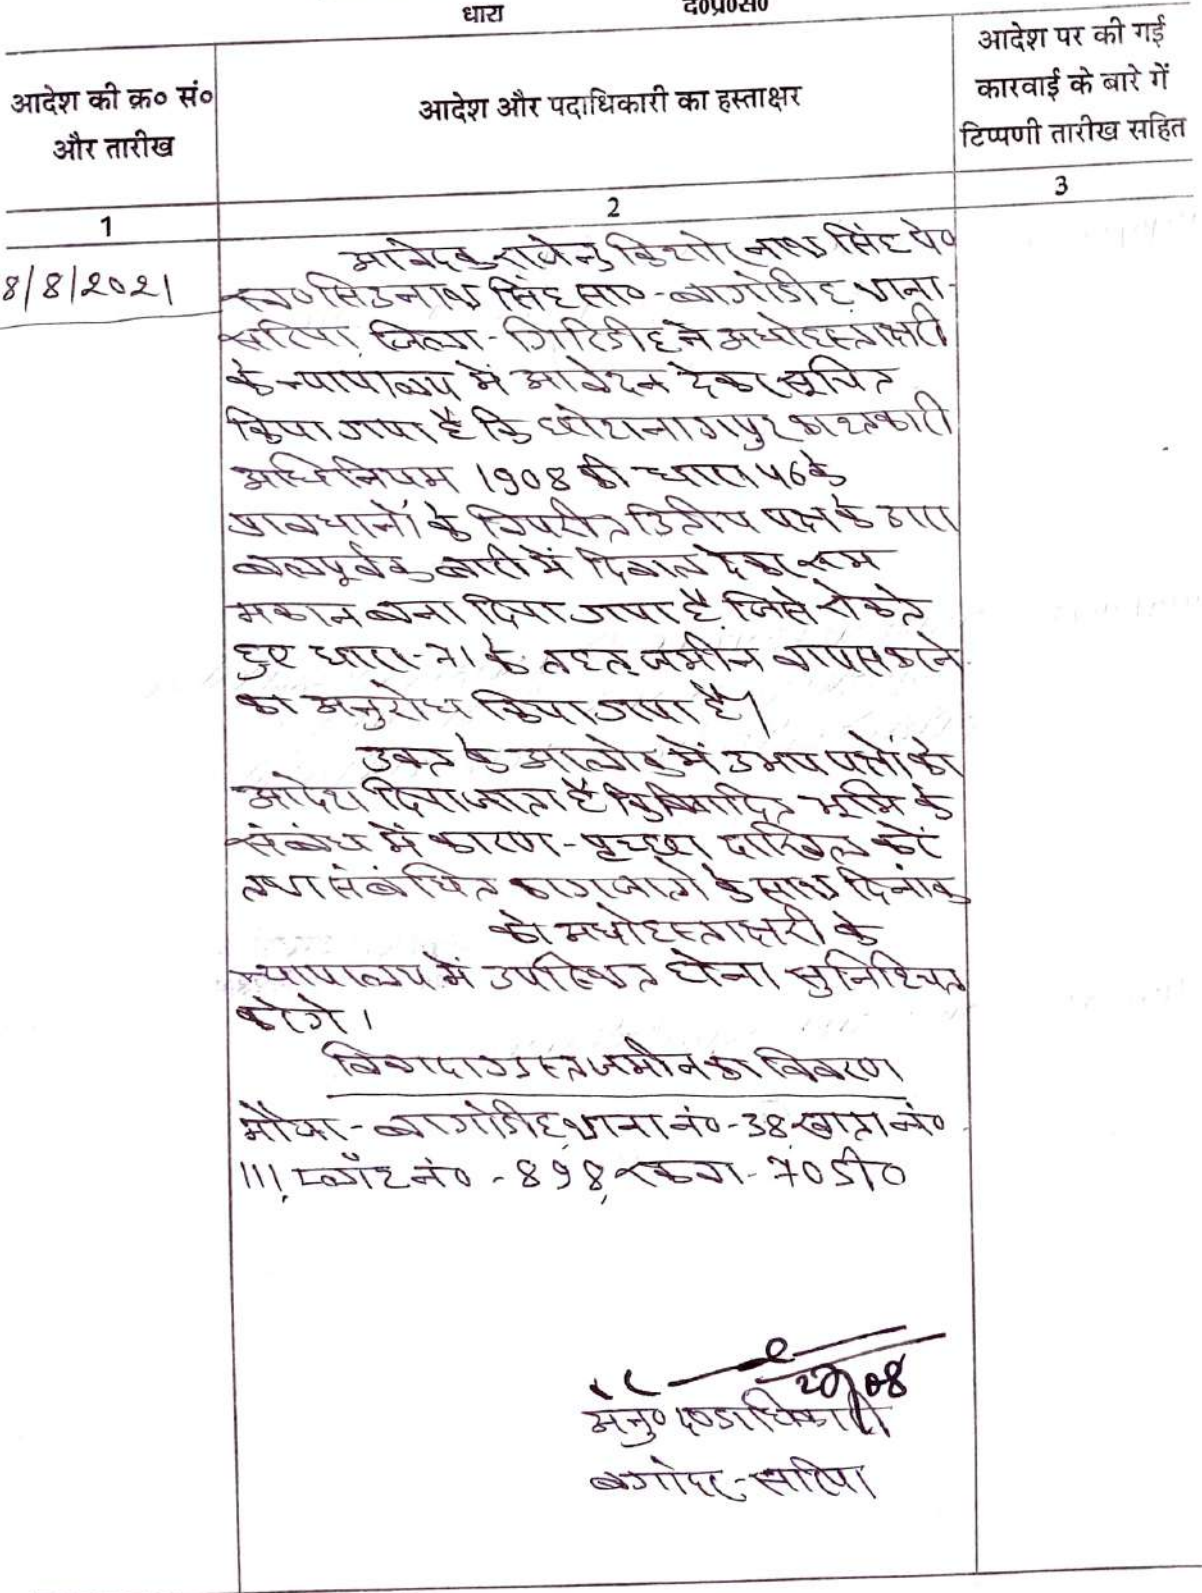 धारा द०प्र०सं०
आदेश की क्र० सं० और तारीख
आदेश और पदाधिकारी का हस्ताक्षर
आदेश पर की गई कारवाई के बारे में टिप्पणी तारीख सहित
1 2 3
8/8/2021
आवेदक किशोर नाथ सिंह पे०
स्व० सिउनाथ सिंह सा०-बागोडीह थाना-
सरिया जिला-गिरिडीह ने अधोहस्ताक्षरी
के न्यायालय में आवेदन देकर सूचित
किया गया है कि छोटानागपुर काश्तकारी
अधिनियम 1908 की धारा 46 के
प्रावधानों के विपरीत द्वितीय पक्ष के द्वारा
बलपूर्वक बारी में दिवाल देकर
मकान बना दिया गया है जिसे रोकते
हुए धारा-71 के तहत जमीन वापस कराने
का अनुरोध किया गया है।
उक्त के आलोक में उभय पक्षों को
आदेश दिया जाता है कि विवादित भूमि के
संबंध में कारण-पृच्छा दाखिल करें
तथा संबंधित कागजातों के साथ दिनांक
को अधोहस्ताक्षरी के
न्यायालय में उपस्थित होना सुनिश्चित
करेंगे।
विवादग्रस्त जमीन का विवरण
मौजा-बागोडीह थाना नं०-38 खाता नं०
111, प्लॉट नं०-898, रकवा-70 डी०
अनु० दण्डाधिकारी
बगोदर-सरिया